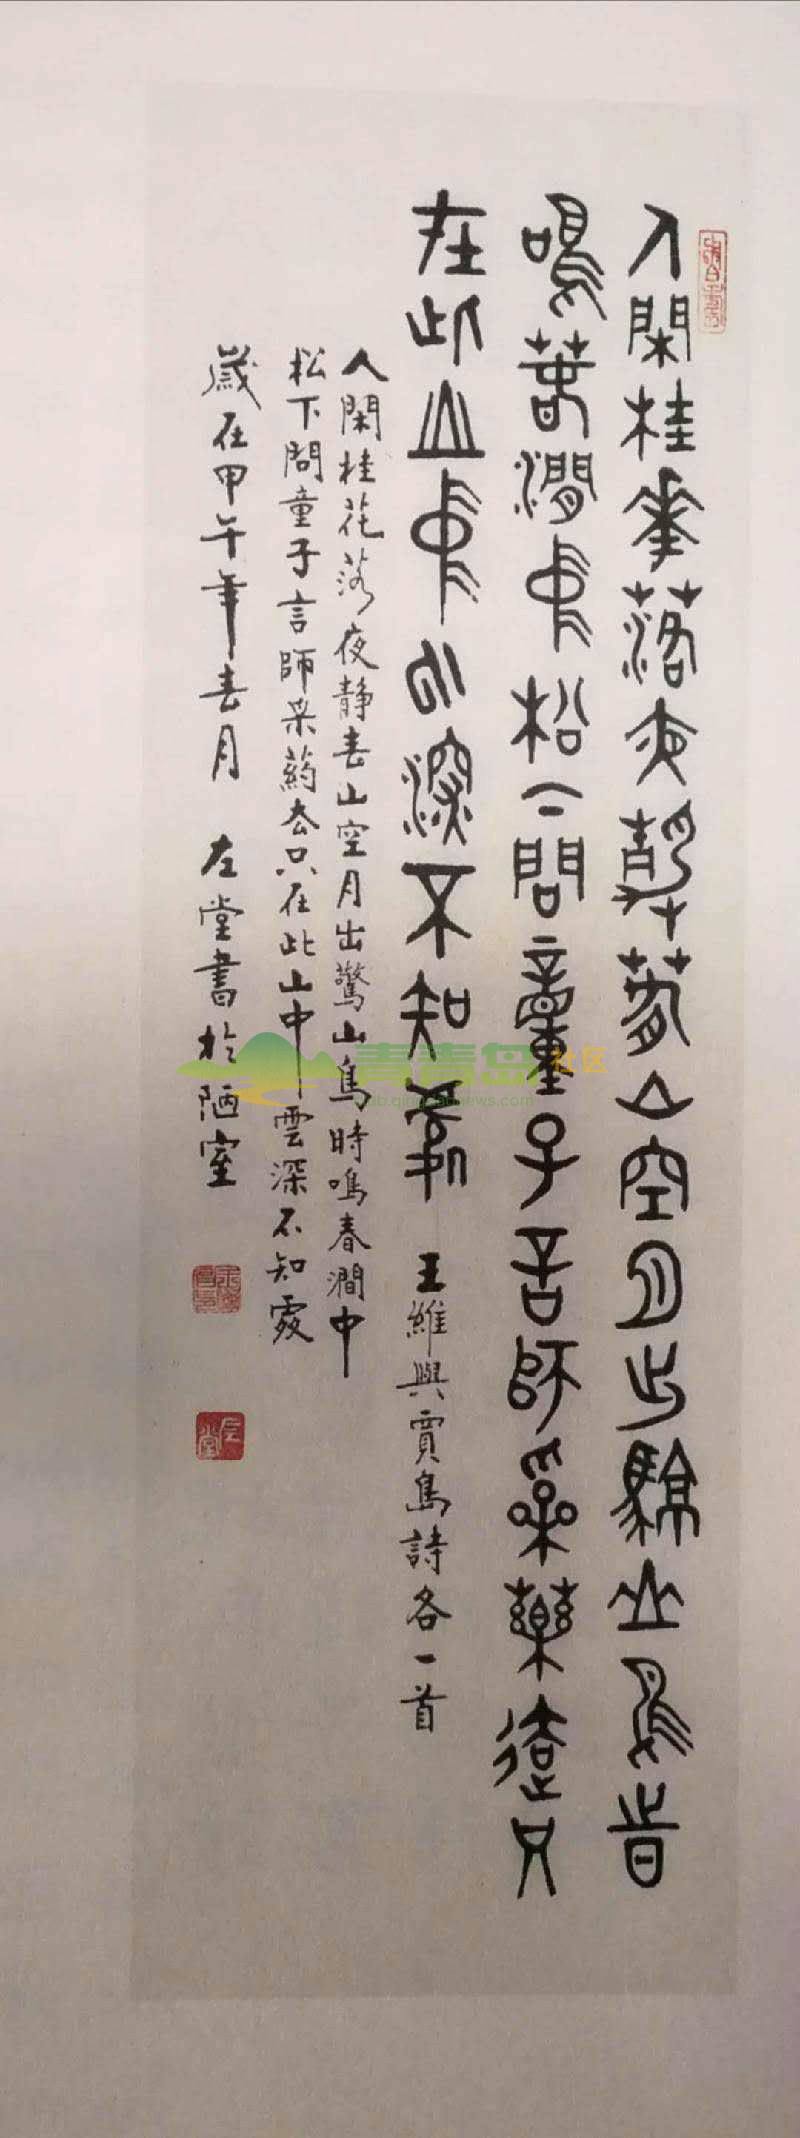 人閑桂華落夜靜春山空月出驚山鳥時
鳴春澗中松下問童子言師采藥去只
在此山中雲深不知處
王維與賈島詩各一首
人閑桂花落夜静春山空月出驚山鳥時鳴春澗中
松下問童子言師采藥去只在此山中雲深不知處
歲在甲午年春月 左堂書於陋室
左堂
青青岛社区
club.qingdaonews.com